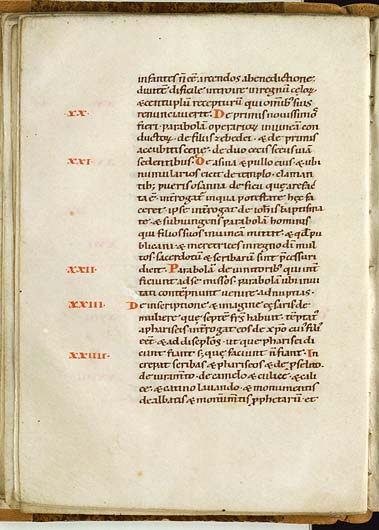 infantes n̄ eē arcendos abenedictione.
diuitē difficile introire inregnū celoꝝ
& centuplū recepturū qui omīb; suis
XX. renunciauerit. De primis nouissimos
fieri. parabolā operarioꝝ inuineā con
ductoꝝ. de filiis zebedei. & de primis
accubitis cene. de duo cecis secus uiā
XXI. sedentibus. De asina & pullo eius. & ubi
numularios eicit de templo. claman
tib; pueris osanna. de ficu que arefac
ta ē. intrrogat̄ inqua potestate hęc fa
ceret. ipse intrrogat de iohis baptisma
te. & subiungens parabolā hominis
qui filios suos inuineā mittit. & qd pu
blicani & meretrices inregno dī mul
tos sacerdotū & scribarū sint p̄cessuri
XXII. dicit. Parabolā deuinitorib; qui int̄
ficiunt adse missos. parabolā ubi inui
tati contēpnunt uenire adnuptias.
XXIII. De inscriptione & imagine cęsaris. de
muliere que septē frs̄ habuit. tēptat̄
apharisęis. intrrogat eos de xp̄o cui' fili'
eēt. & ad discipłos. ut que pharisei di
XXIIII. cunt fiant s; que faciunt n̄ fiant. In
crepat scribas & phariseos & de pselito.
de iuramto. de camelo & culice. & cali
ce. & catino lauando. & monumentis
dealbatis & monumtis pphetarū et